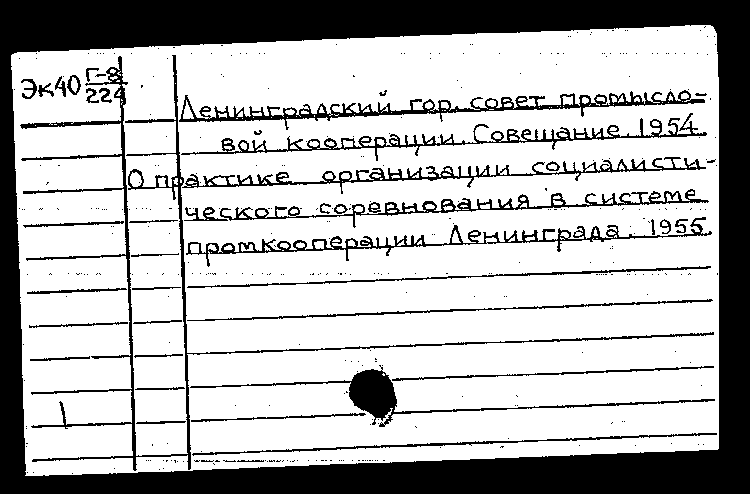 Эк40 Г-8
224
Ленинградский гор. совет промысло-
вой кооперации. Совещание. 1954.
О практике организации социалисти-
ческого соревнования в системе
промкооперации Ленинграда. 1955.